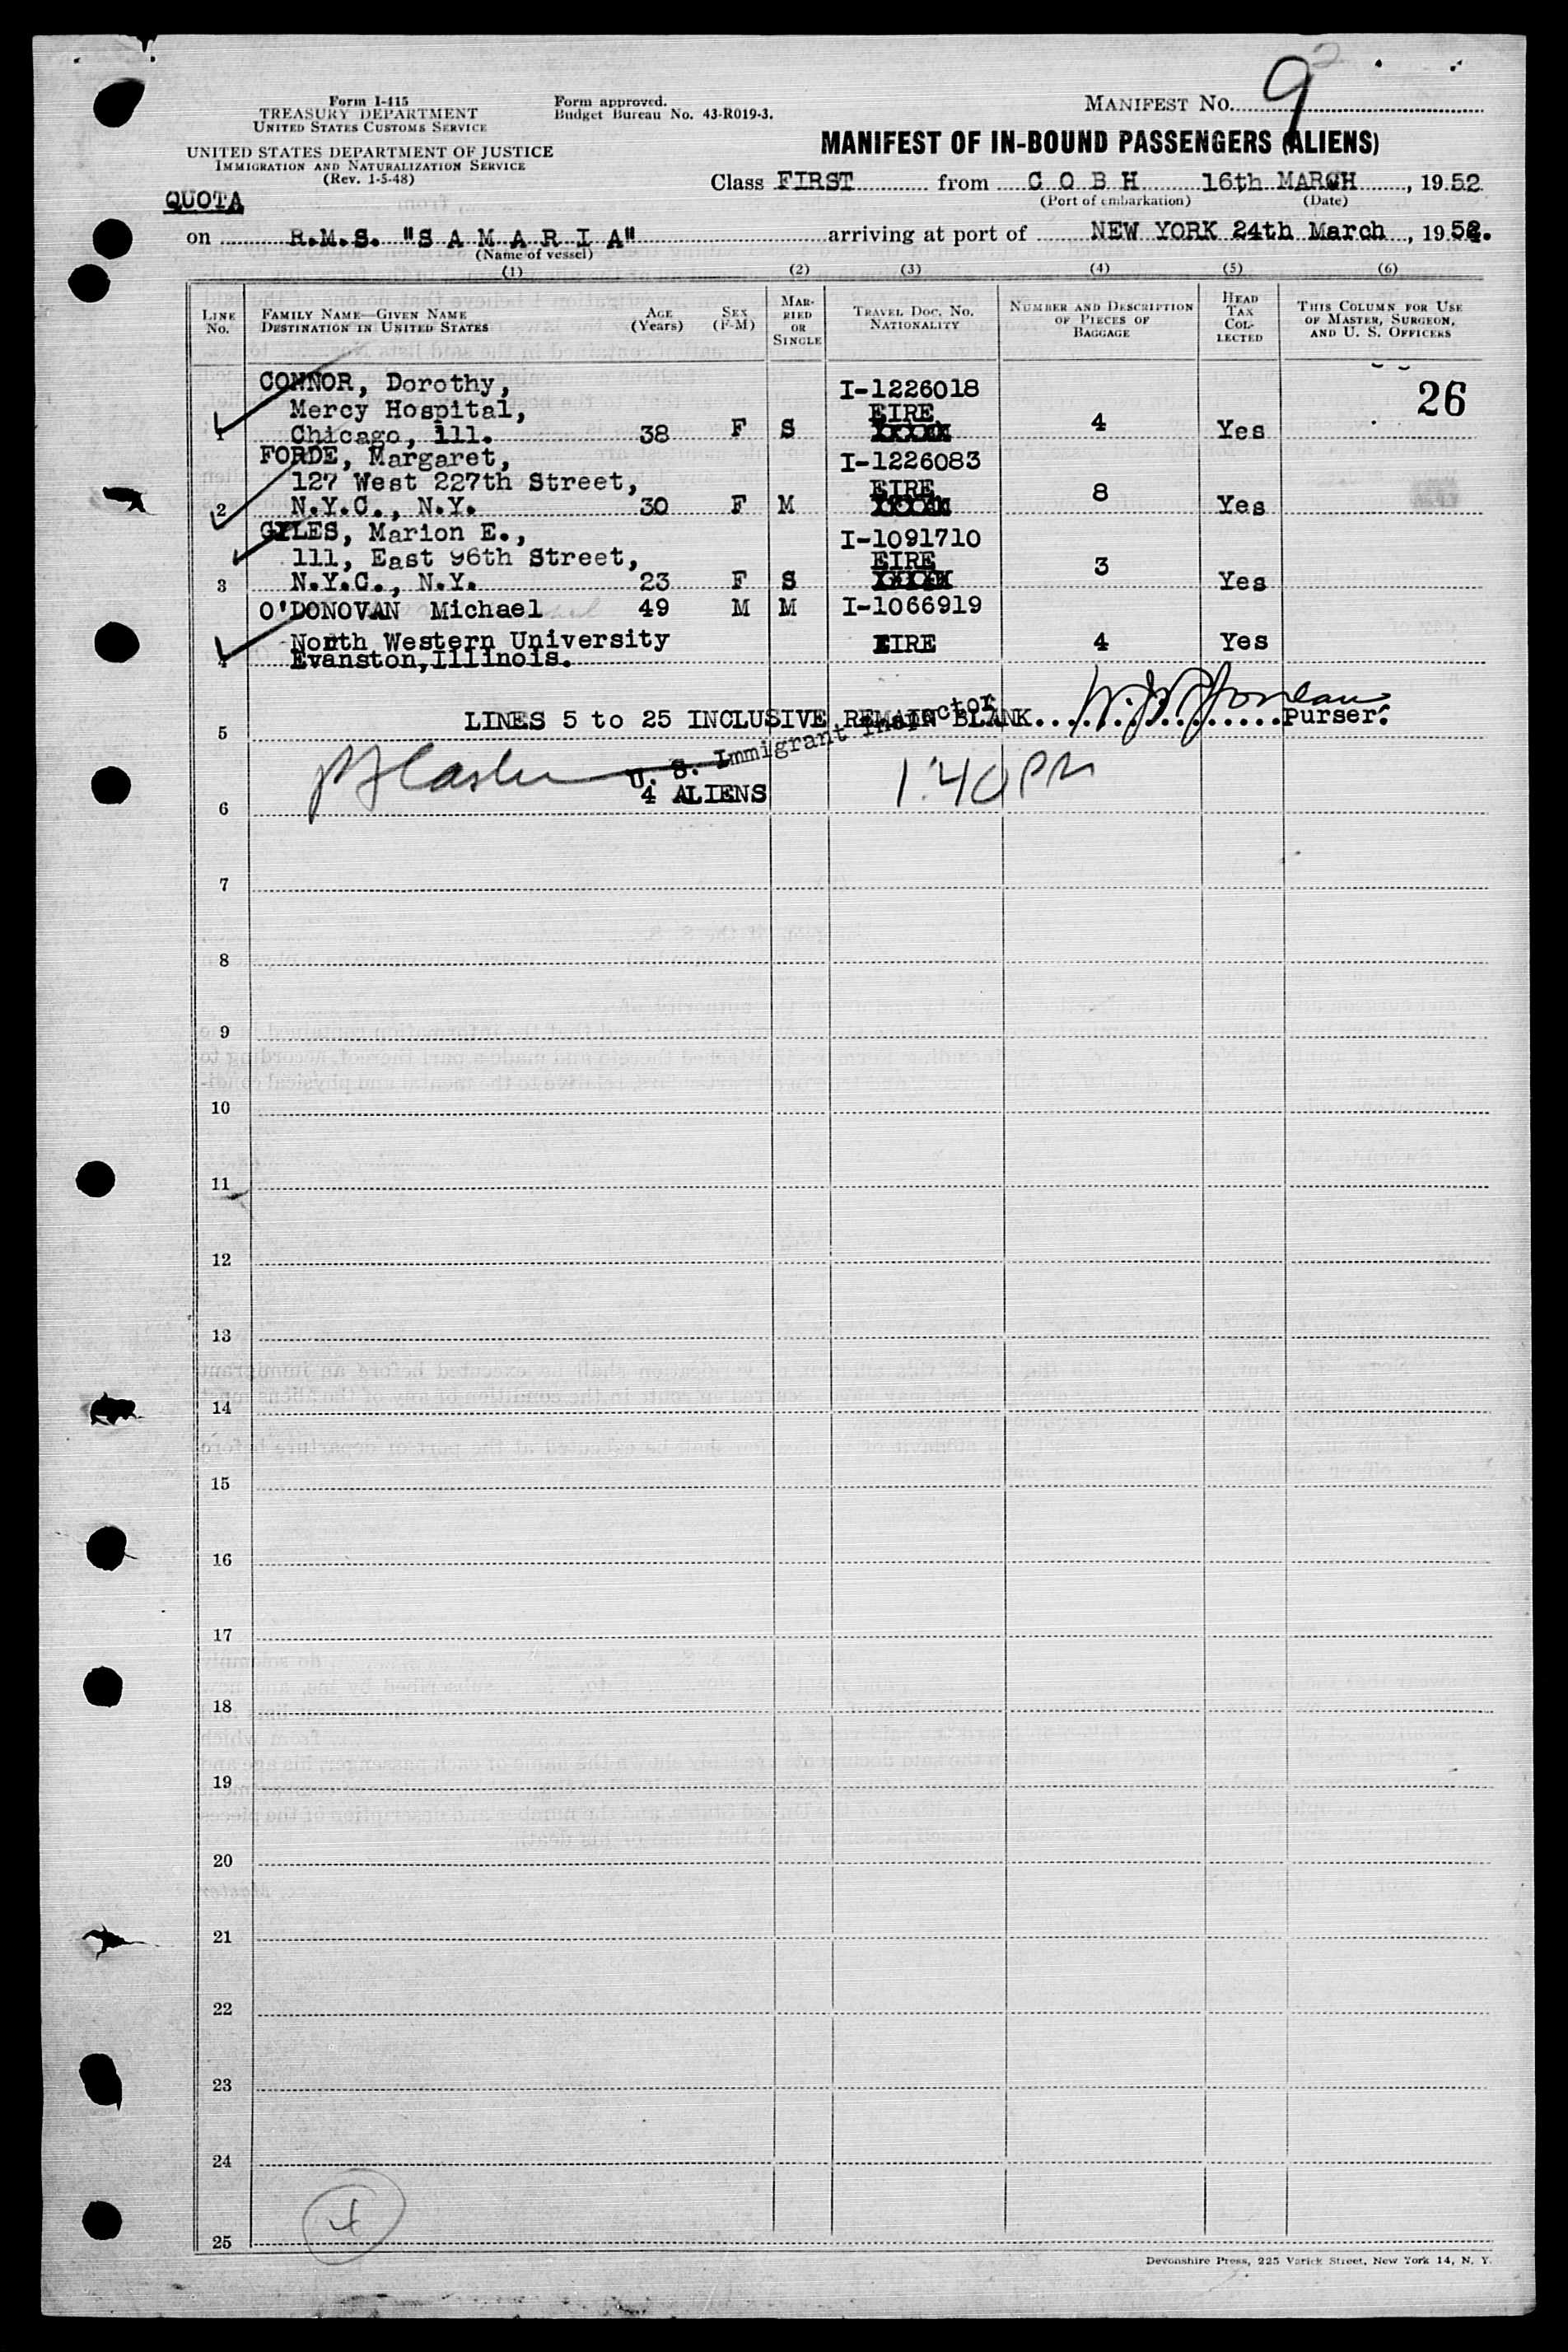 9
Form I-415
TREASURY DEPARTMENT
UNITED STATES CUSTOMS SERVICE
UNITED STATES DEPARTMENT OF JUSTICE
IMMIGRATION AND NATURALIZATION SERVICE
(Rev. 1-5-48)
Form approved.
Budget Bureau No. 43-R019-3.
MANIFEST NO.
MANIFEST OF IN-BOUND PASSENGERS (ALIENS)
QUOTA
Class FIRST from C O B H 16th MARCH, 1952
(Port of embarkation) (Date)
on R.M.S. "S A M A R I A" arriving at port of NEW YORK 24th March, 1952.
(Name of vessel)
(1) (2) (3) (4) (5) (6)
LINE NO.
FAMILY NAME—GIVEN NAME
DESTINATION IN UNITED STATES
AGE (Years)
SEX (F-M)
MARRIED OR SINGLE
TRAVEL DOC. NO. NATIONALITY
NUMBER AND DESCRIPTION OF PIECES OF BAGGAGE
HEAD TAX COLLECTED
THIS COLUMN FOR USE OF MASTER, SURGEON, AND U. S. OFFICERS
26
CONNOR, Dorothy, I-1226018
Mercy Hospital, EIRE
1 Chicago, ill. 38 F S XXXXX 4 Yes
FORDE, Margaret, I-1226083
127 West 227th Street, EIRE
2 N.Y.C., N.Y. 30 F M XXXXX 8 Yes
GILES, Marion E., I-1091710
111, East 96th Street, EIRE
3 N.Y.C., N.Y. 23 F S XXXXX 3 Yes
O'DONOVAN Michael 49 M M I-1066919
North Western University EIRE 4 Yes
4 Evanston, Illinois.
5 LINES 5 to 25 INCLUSIVE REMAIN BLANK. Purser.
U. S. Immigrant Inspector
1:40 PM
6 4 ALIENS
7
8
9
10
11
12
13
14
15
16
17
18
19
20
21
22
23
24
4
25
Devonshire Press, 225 Varick Street, New York 14, N. Y.